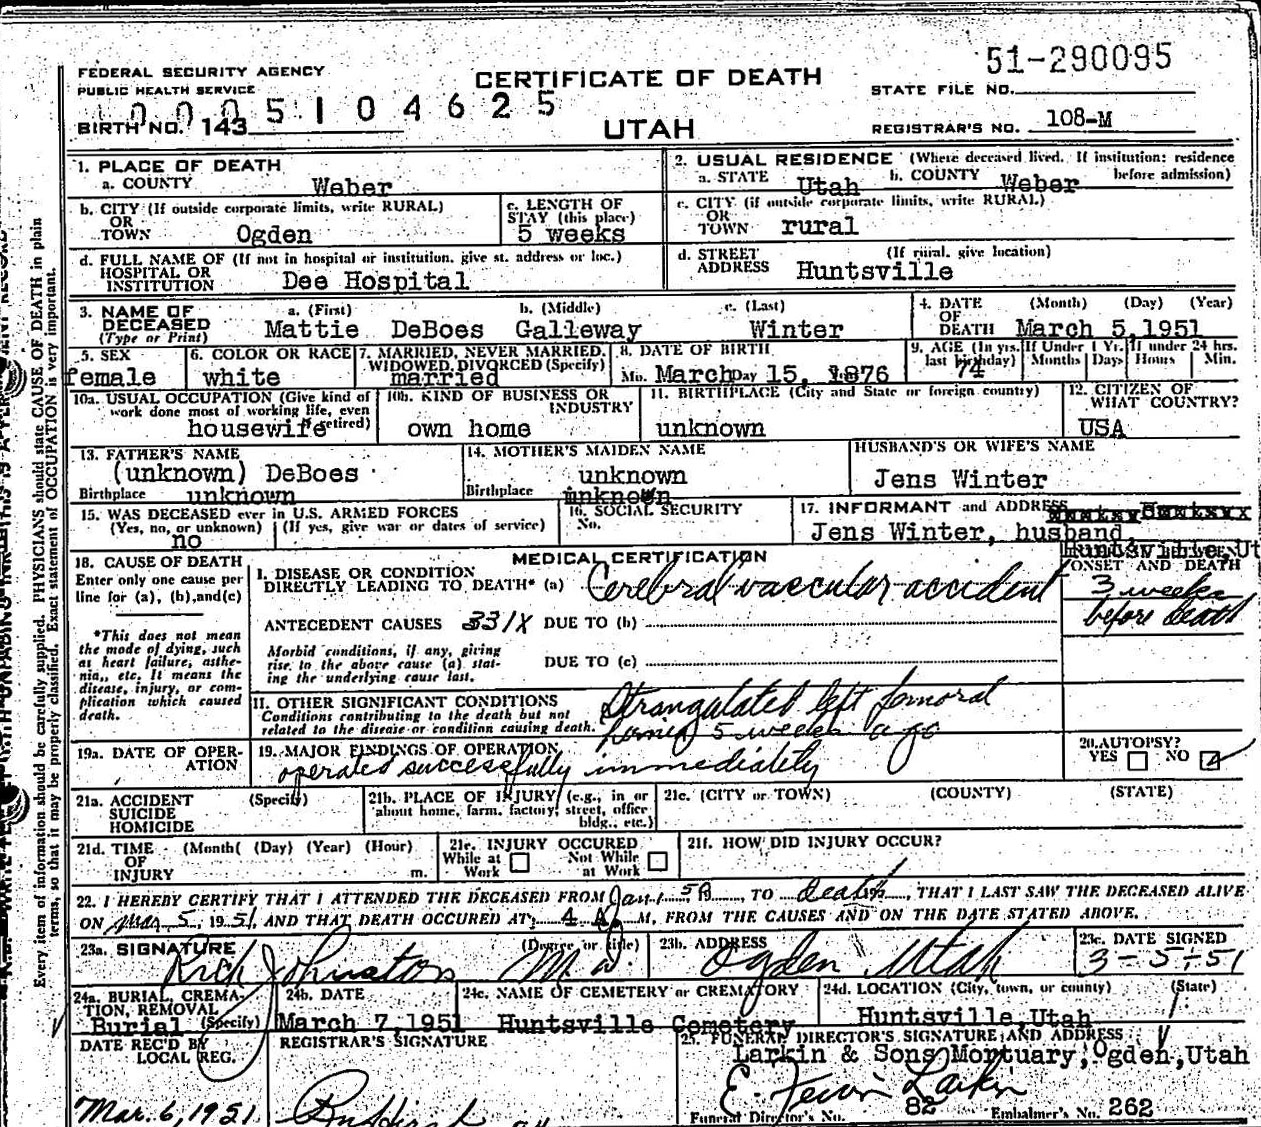 51-290095
FEDERAL SECURITY AGENCY
PUBLIC HEALTH SERVICE
CERTIFICATE OF DEATH
STATE FILE NO.
0005104625
BIRTH NO. 143
UTAH
REGISTRAR'S NO. 108-M
1. PLACE OF DEATH
a. COUNTY Weber
2. USUAL RESIDENCE (Where deceased lived. If institution: residence before admission)
a. STATE Utah b. COUNTY Weber
b. CITY (If outside corporate limits, write RURAL)
OR
TOWN Ogden
c. LENGTH OF
STAY (this place)
5 weeks
c. CITY (if outside corporate limits, write RURAL)
OR
TOWN rural
d. FULL NAME OF (If not in hospital or institution. give st. address or loc.)
HOSPITAL OR
INSTITUTION Dee Hospital
d. STREET (If rural. give location)
ADDRESS Huntsville
3. NAME OF
DECEASED
(Type or Print)
a. (First) b. (Middle) c. (Last)
Mattie DeBoes Galleway Winter
4. DATE (Month) (Day) (Year)
OF
DEATH March 5,1951
5. SEX
female
6. COLOR OR RACE
white
7. MARRIED, NEVER MARRIED,
WIDOWED, DIVORCED (Specify)
married
8. DATE OF BIRTH
Mo. March Day 15, 1876
9. AGE (In yrs. last birthday)
74
If Under 1 Yr.
Months Days
If under 24 hrs.
Hours Min.
10a. USUAL OCCUPATION (Give kind of
work done most of working life, even
housewife retired)
10b. KIND OF BUSINESS OR
INDUSTRY
own home
11. BIRTHPLACE (City and State or foreign country)
unknown
12. CITIZEN OF
WHAT COUNTRY?
USA
13. FATHER'S NAME
(unknown) DeBoes
Birthplace unknown
14. MOTHER'S MAIDEN NAME
unknown
Birthplace unknown
HUSBAND'S OR WIFE'S NAME
Jens Winter
15. WAS DECEASED ever in U.S. ARMED FORCES
(Yes, no, or unknown) (If yes, give war or dates of service)
no
16. SOCIAL SECURITY
No.
17. INFORMANT and ADDRESS
Jens Winter, husband,
Huntsville, Ut
18. CAUSE OF DEATH
Enter only one cause per
line for (a), (b),and(c)
*This does not mean
the mode of dying, such
as heart failure, asthe-
nia, etc. It means the
disease, injury, or com-
plication which caused
death.
MEDICAL CERTIFICATION
I. DISEASE OR CONDITION
DIRECTLY LEADING TO DEATH* (a) Cerebral vascular accident
ONSET AND DEATH
3 weeks
before death
ANTECEDENT CAUSES 331X DUE TO (b)
Morbid conditions, if any, giving
rise to the above cause (a) stat-
ing the underlying cause last.
DUE TO (c)
II. OTHER SIGNIFICANT CONDITIONS
Conditions contributing to the death but not
related to the disease or condition causing death.
Strangulated left femoral
hernia 5 weeks ago
19a. DATE OF OPER-
ATION
19. MAJOR FINDINGS OF OPERATION
operated successfully immediately
20. AUTOPSY?
YES NO
21a. ACCIDENT (Specify)
SUICIDE
HOMICIDE
21b. PLACE OF INJURY (e.g., in or
about home, farm, factory, street, office
bldg., etc.)
21c. (CITY or TOWN) (COUNTY) (STATE)
21d. TIME (Month( (Day) (Year) (Hour)
OF
INJURY m.
21e. INJURY OCCURED
While at Work
Not While at Work
21f. HOW DID INJURY OCCUR?
22. I HEREBY CERTIFY THAT I ATTENDED THE DECEASED FROM Jan. TO death, THAT I LAST SAW THE DECEASED ALIVE
ON Mar 5, 1951, AND THAT DEATH OCCURED AT 4 M, FROM THE CAUSES AND ON THE DATE STATED ABOVE.
23a. SIGNATURE (Degree or title)
Rich Johnston M.D.
23b. ADDRESS
Ogden Utah
23c. DATE SIGNED
3-5-51
24a. BURIAL, CREMA-
TION, REMOVAL
Burial (Specify)
24b. DATE
March 7,1951
24c. NAME OF CEMETERY or CREMATORY
Huntsville Cemetery
24d. LOCATION (City, town, or county) (State)
Huntsville,Utah
DATE REC'D BY
LOCAL REG.
Mar. 6, 1951
REGISTRAR'S SIGNATURE
25. FUNERAL DIRECTOR'S SIGNATURE AND ADDRESS
Larkin & Sons Mortuary, Ogden, Utah
Larkin
Funeral Director's No. 82 Embalmer's No. 262
Every item of information should be carefully supplied. PHYSICIANS should state CAUSE OF DEATH in plain
terms, so that it may be properly classified. Exact statement of OCCUPATION is very important.